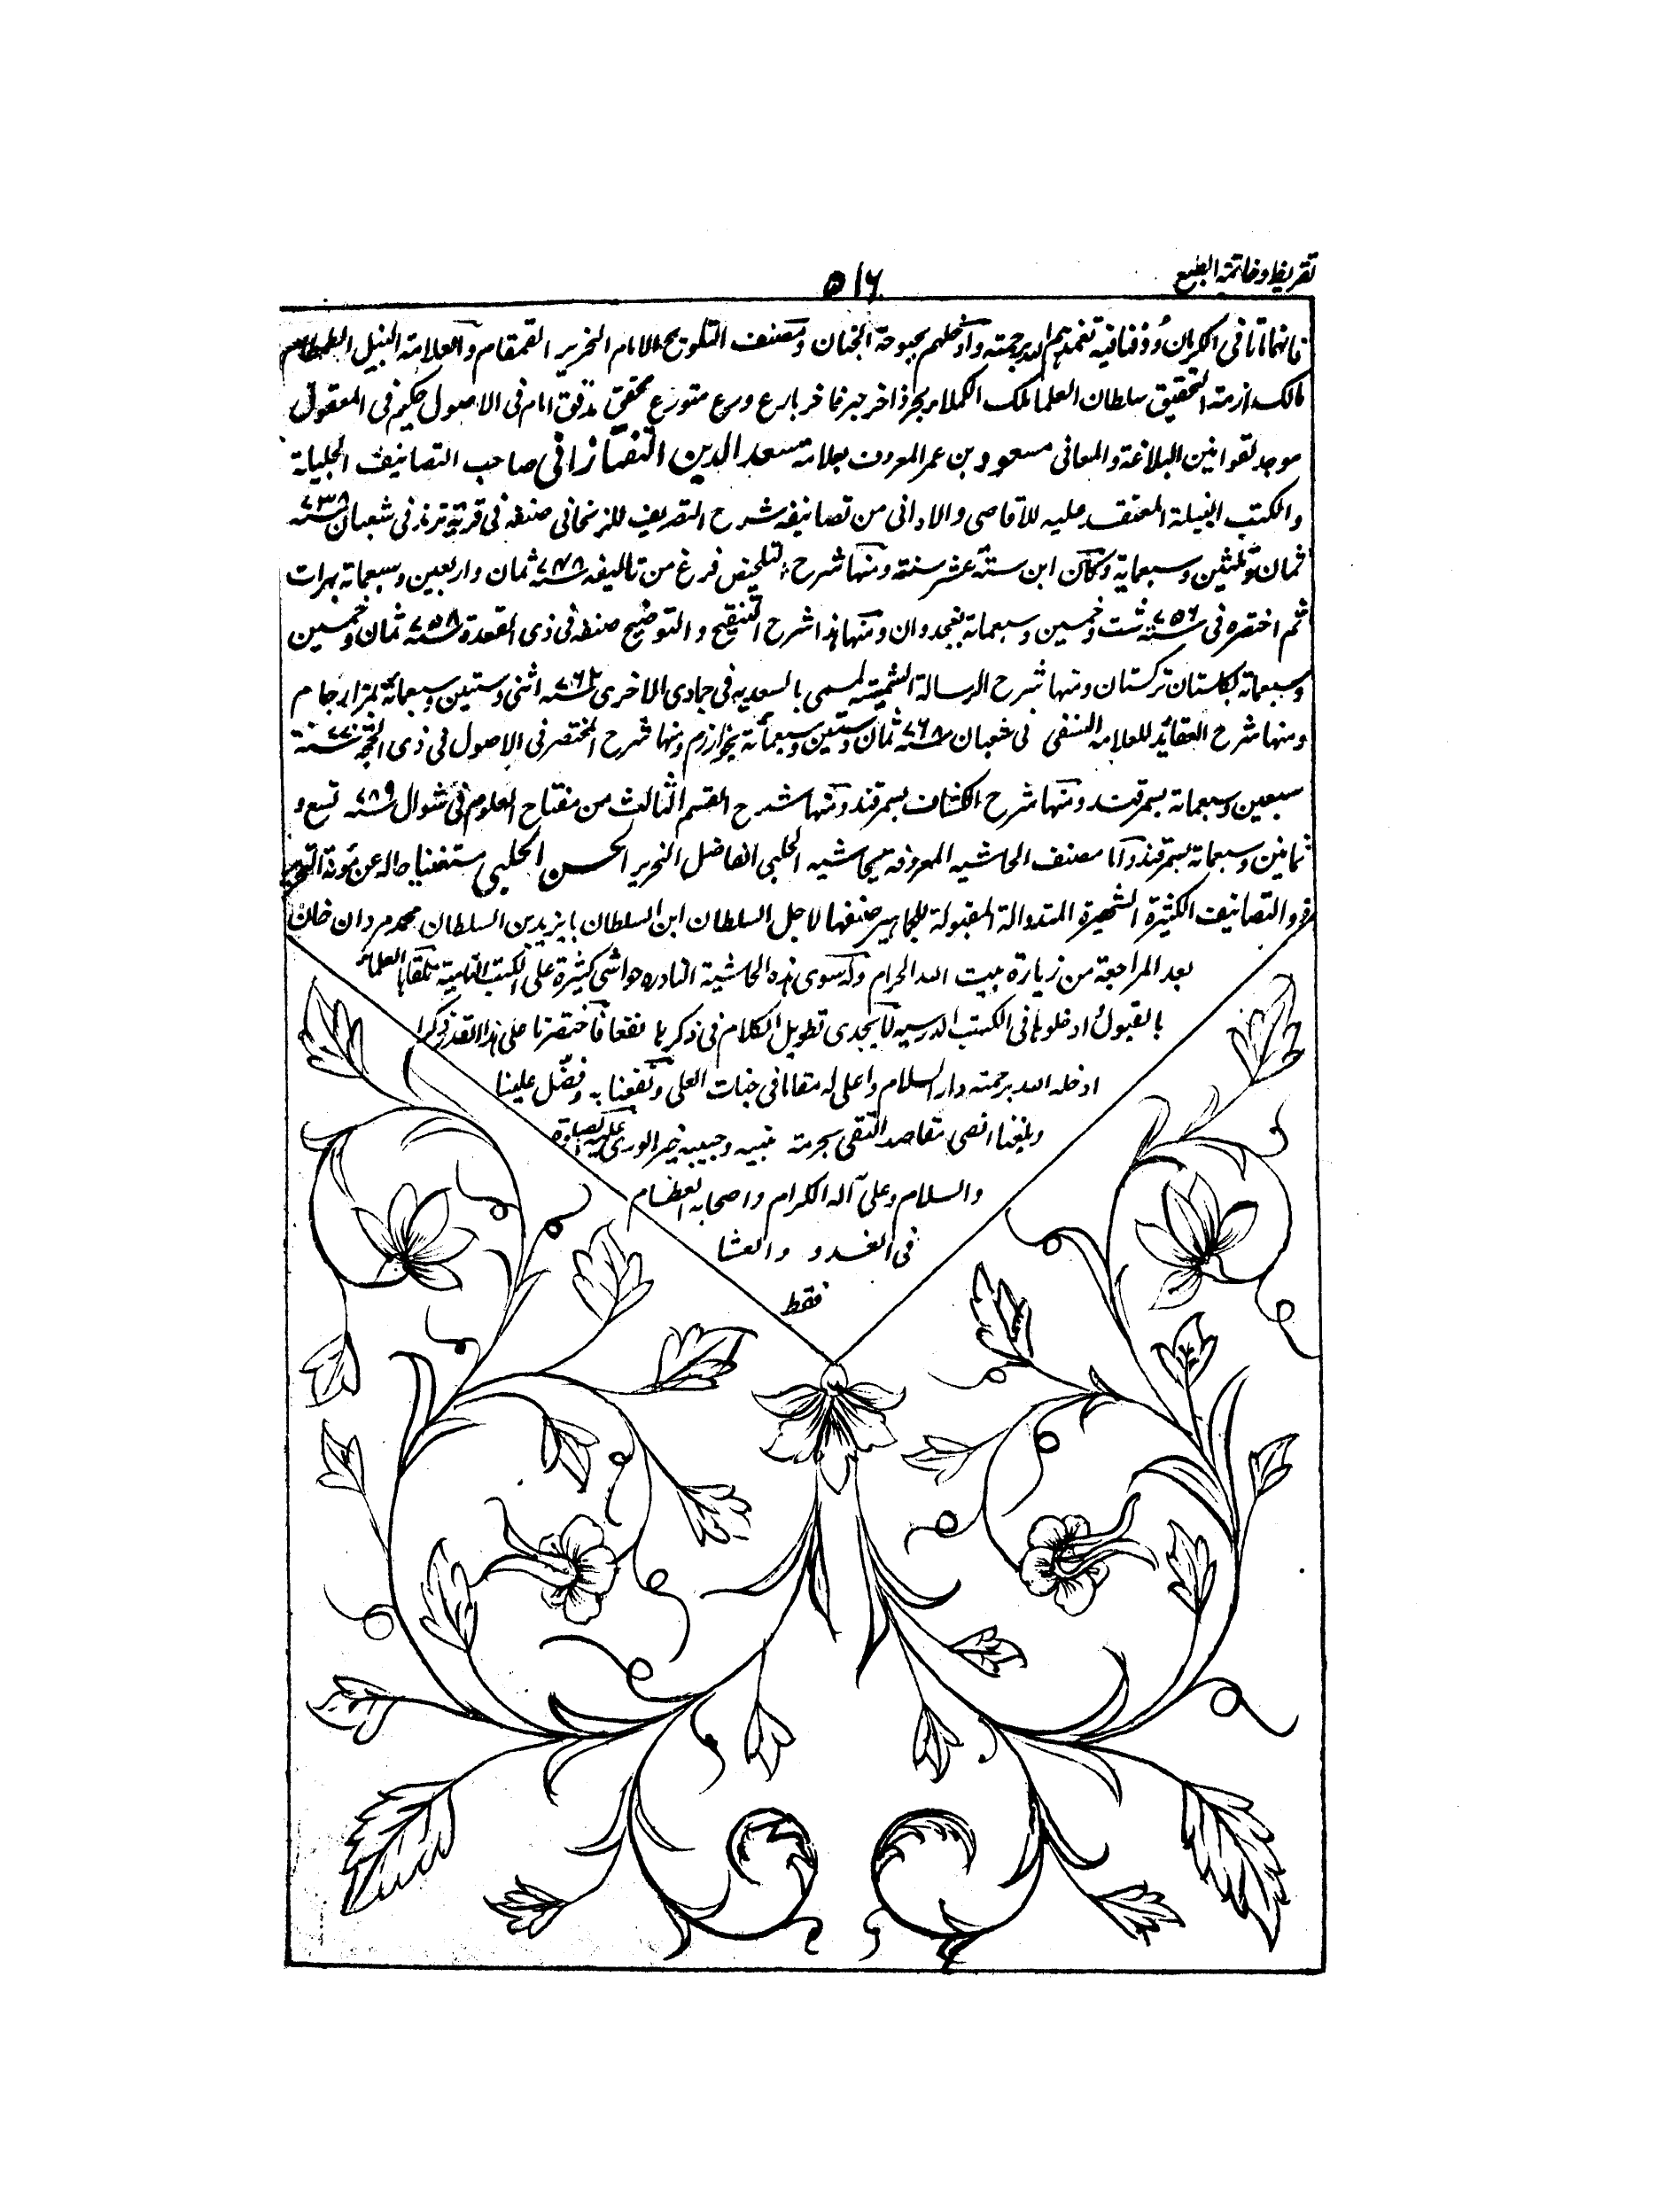 تقريظ و خاتمة الطبع
۵۱۶
فانهما ماتا فى الكرمان ودفنا فيه تغمدهم الله برحمته وادخلهم بحبوحة الجنان ومصنف التلويح الامام النحرير القمقام والعلامة النبيل الطمطام
مالك ازمة التحقيق سلطان العلما ملك الكملا بحر ذاخر حبر فاخر بارع ورع متورع محقق مدقق امام فى الاصول حكيم فى المعقول
موجد لقوانين البلاغة والمعانى مسعود بن عمر المعروف بعلامة سعد الدين التفتازانى صاحب التصانيف الجليلة
والكتب النبيلة المعتقد عليه للاقاصى والادانى من تصانيفه شرح التصريف للزنجانى صنفه فى قرية ترمذ فى شعبان سنة ۷۳۸
ثمان وثلثين وسبعماية وكان ابن ستة عشر سنة ومنها شرح التلخيص فرغ من تاليفه سنة ۷۴۸ ثمان واربعين وسبعماية بهرات
ثم اختصره فى سنة ۷۵۶ ست وخمسين وسبعماية بغجدوان ومنها هذا شرح التنقيح والتوضيح صنفه فى ذى القعدة سنة ۷۵۸ ثمان وخمسين
وسبعماية بكلستان تركستان ومنها شرح الرسالة الشمسية المسمى بالسعديه فى جمادى الاخرى سنة ۷۶۲ اثنى وستين وسبعماية بمزار جام
ومنها شرح العقائد للعلامه النسفى فى شعبان سنة ۷۶۸ ثمان وستين وسبعمائة بخوارزم ومنها شرح المختصر فى الاصول فى ذى الحجة سنة ۷۷۰
سبعين وسبعماية بسمرقند ومنها شرح الكشاف بسمرقند ومنها شرح القسم الثالث من مفتاح العلوم فى شوال سنة ۷۸۹ تسع و
ثمانين وسبعماية بسمرقند واما مصنف الحاشيه المعروفة بحاشيه الحلبى الفاضل النحرير الحسن الحلبى ستغنيا حاله عن مؤنة التحرير
ذو التصانيف الكثيرة الشهيرة المتداولة المقبولة للجماهير صنفها لاجل السلطان ابن السلطان بايزيد بن السلطان محمد مردان خان
بعد المراجعة من زيارة بيت الله الحرام وله سوى هذه الحاشية النادره حواشى كثيرة على الكتب النامية تلقاها العلماء
بالقبول ادخلوها فى الكتب الدرسيه لا يجدى تطويل الكلام فى ذكرها نفعا فاختصرنا على هذا القدر ذكرا
ادخله الله برحمته دار السلام واعلى له مقاما فى جنات العلى ونفعنا به وفضل علينا
وبلغنا اقصى مقاصد التقى بحرمة نبيه وحبيبه خير الورى عليه الصلوة
والسلام وعلى آله الكرام واصحابه العظام
فى الغدو والعشا
فقط